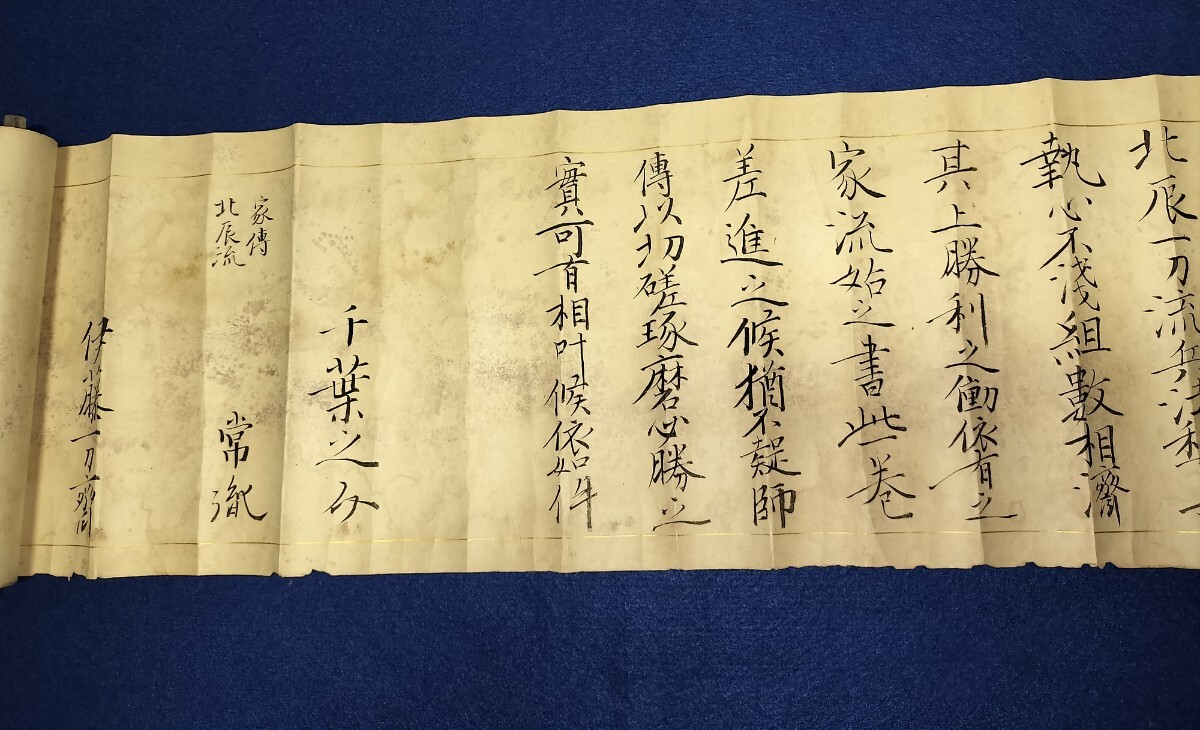 北辰一刀流兵法
執心不淺組數相濟
其上勝利之働依有之
家流始之書此巻
差進之候猶不疑師
傳以切磋琢磨必勝之
實可有相叶候依如件
千葉之介
家傳
北辰流
常胤
伊藤一刀齋